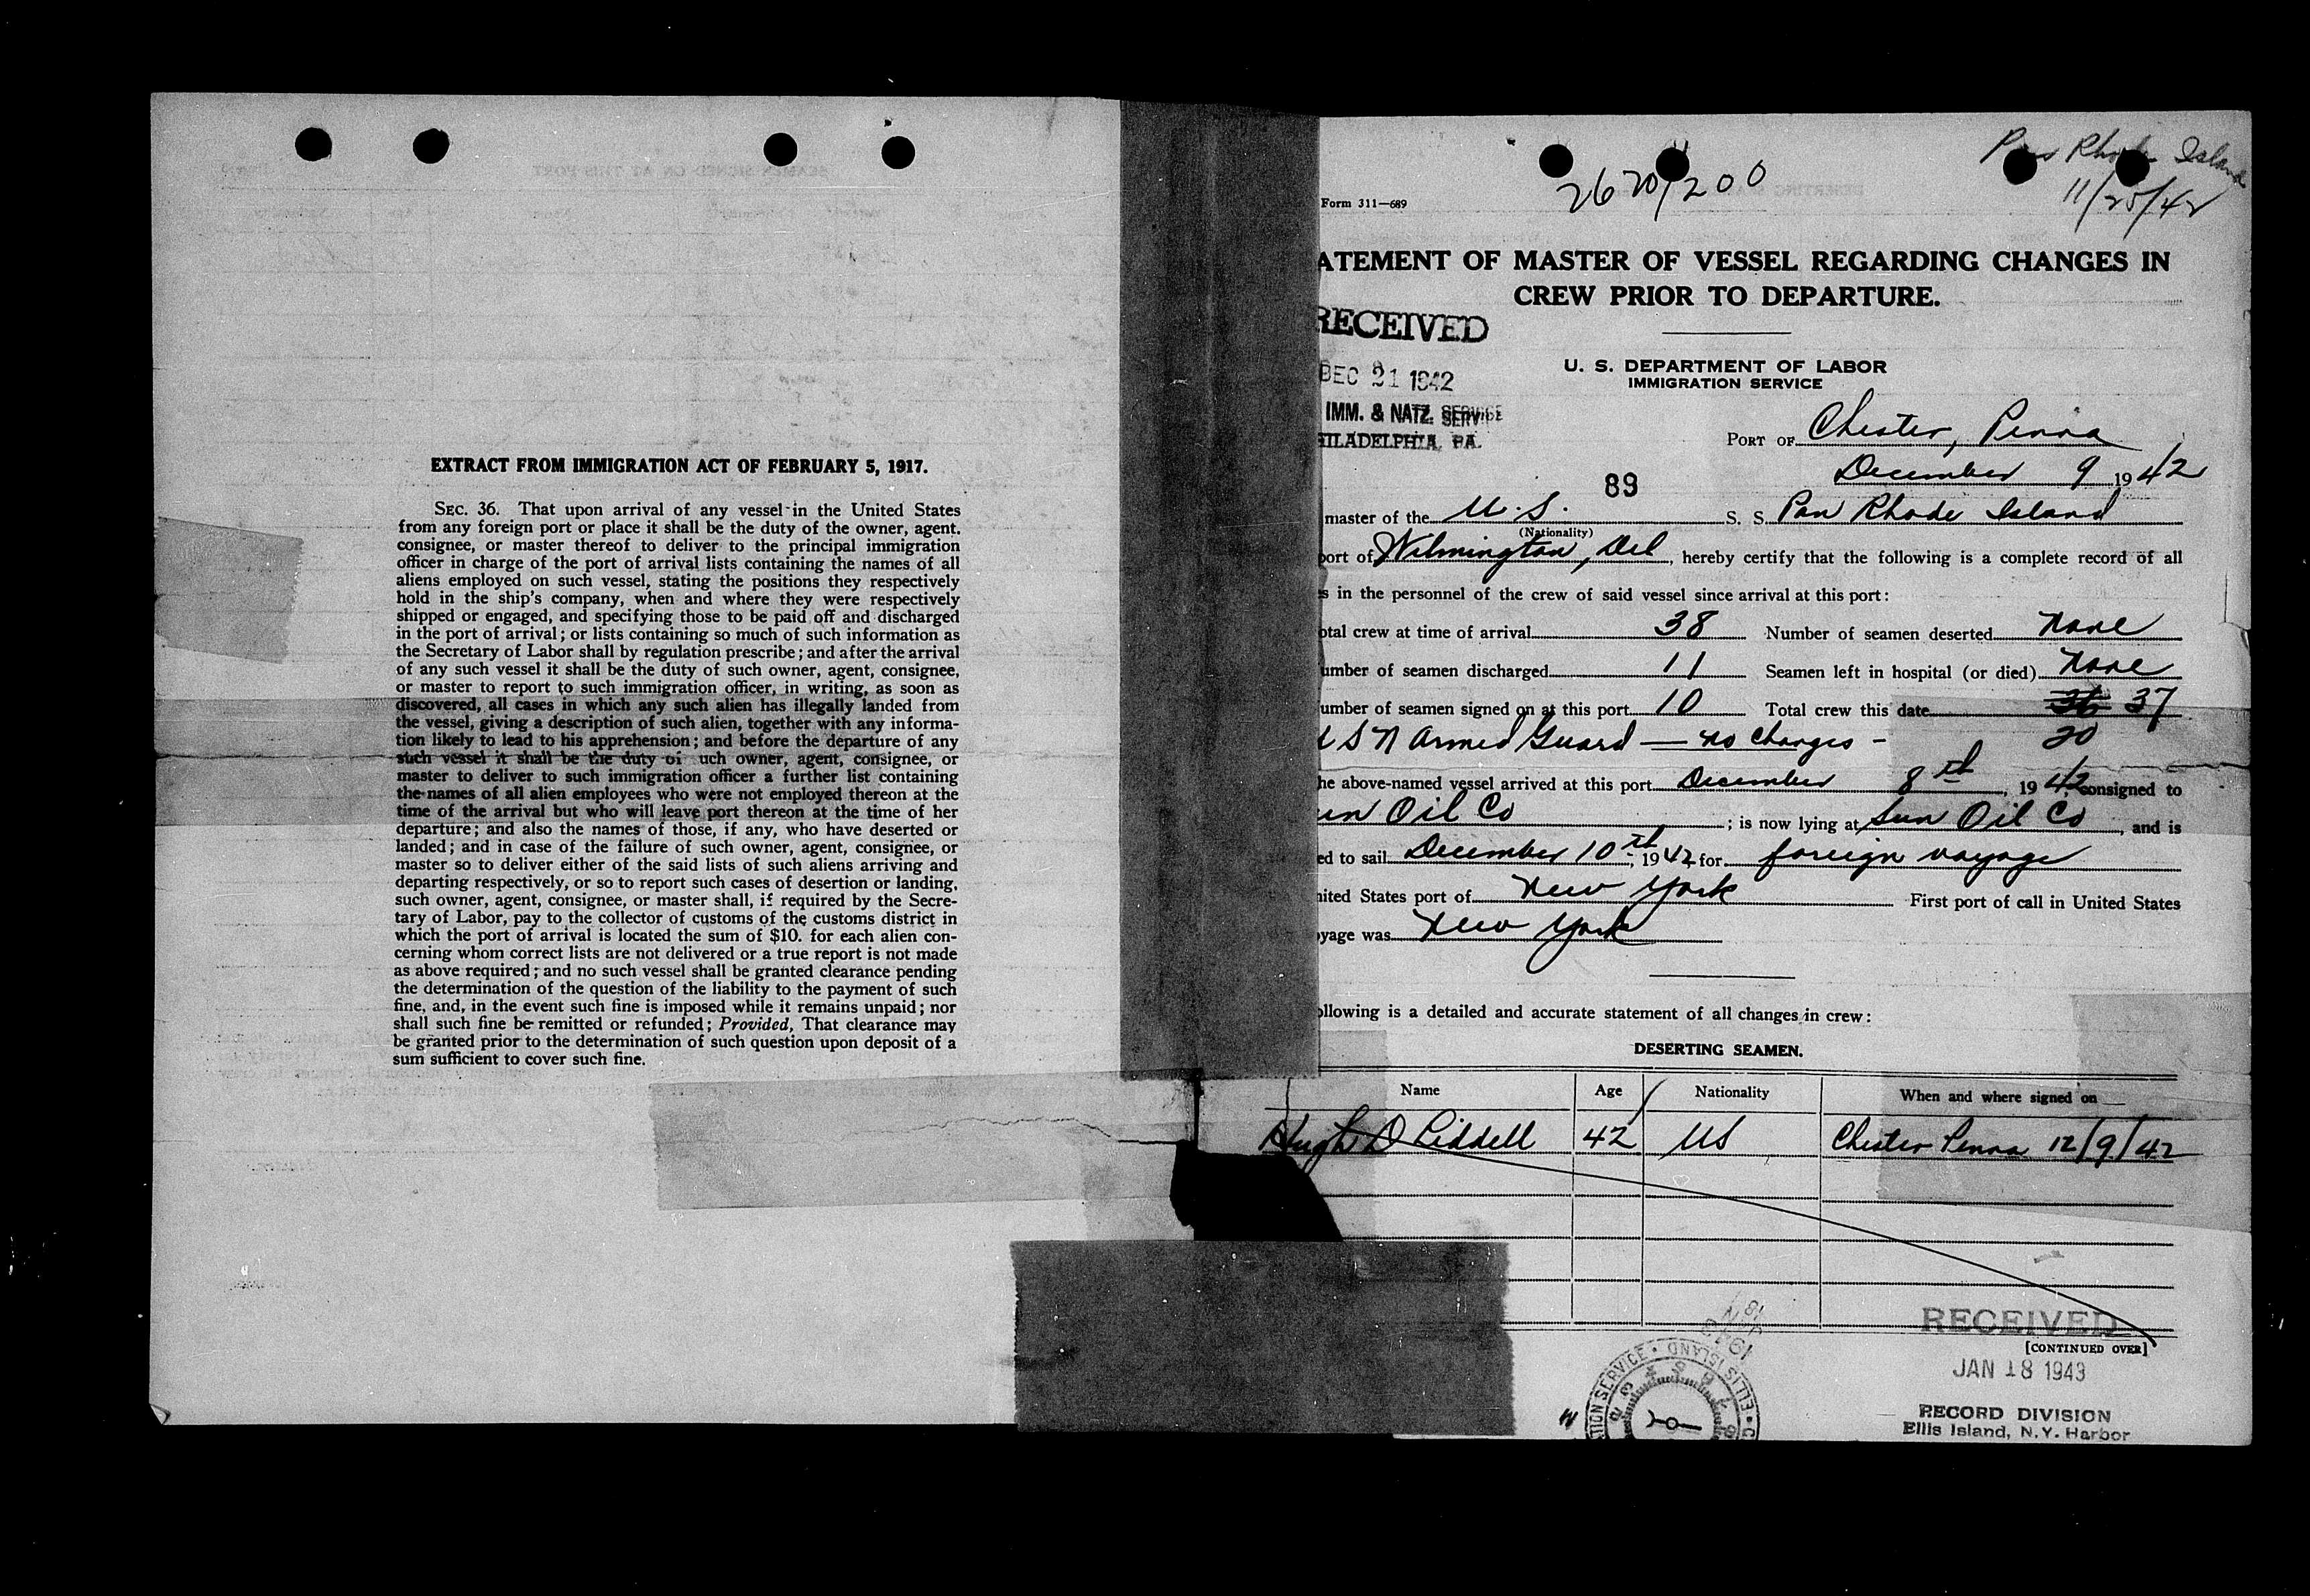 EXTRACT FROM IMMIGRATION ACT OF FEBRUARY 5, 1917.
SEC. 36. That upon arrival of any vessel in the United States
from any foreign port or place it shall be the duty of the owner, agent.
consignee, or master thereof to deliver to the principal immigration
officer in charge of the port of arrival lists containing the names of all
aliens employed on such vessel, stating the positions they respectively
hold in the ship's company, when and where they were respectively
shipped or engaged, and specifying those to be paid off and discharged
in the port of arrival; or lists containing so much of such information as
the Secretary of Labor shall by regulation prescribe; and after the arrival
of any such vessel it shall be the duty of such owner, agent, consignee,
or master to report to such immigration officer, in writing, as soon as
discovered, all cases in which any such alien has illegally landed from
the vessel, giving a description of such alien, together with any informa-
tion likely to lead to his apprehension; and before the departure of any
such vessel it shall be the duty of uch owner, agent, consignee, or
master to deliver to such immigration officer a further list containing
the names of all alien employees who were not employed thereon at the
time of the arrival but who will leave port thereon at the time of her
departure; and also the names of those, if any, who have deserted or
landed; and in case of the failure of such owner, agent, consignee, or
master so to deliver either of the said lists of such aliens arriving and
departing respectively, or so to report such cases of desertion or landing,
such owner, agent, consignee, or master shall, if required by the Secre-
tary of Labor, pay to the collector of customs of the customs district in
which the port of arrival is located the sum of $10. for each alien con-
cerning whom correct lists are not delivered or a true report is not made
as above required; and no such vessel shall be granted clearance pending
the determination of the question of the liability to the payment of such
fine, and, in the event such fine is imposed while it remains unpaid; nor
shall such fine be remitted or refunded; Provided, That clearance may
be granted prior to the determination of such question upon deposit of a
sum sufficient to cover such fine.
Pan Rhode Island
11/25/42
2620/200
Form 311—689
ATEMENT OF MASTER OF VESSEL REGARDING CHANGES IN
CREW PRIOR TO DEPARTURE.
RECEIVED
DEC 21 1942
IMM. & NATZ. SERVICE
HILADELPHIA, PA.
U. S. DEPARTMENT OF LABOR
IMMIGRATION SERVICE
PORT OF Chester, Penna
December 9 1942
89
master of the U.S. S. S. Pan Rhode Island
(Nationality)
port of Wilmington, Del, hereby certify that the following is a complete record of all
s in the personnel of the crew of said vessel since arrival at this port:
otal crew at time of arrival 38 Number of seamen deserted None
umber of seamen discharged 11 Seamen left in hospital (or died) None
umber of seamen signed on at this port 10 Total crew this date 36 37
U S N Armed Guard — no changes - 20
he above-named vessel arrived at this port December 8th, 1942, consigned to
un Oil Co ; is now lying at Sun Oil Co, and is
ed to sail December 10th, 1942 for foreign voyage
nited States port of New York First port of call in United States
yage was New York
ollowing is a detailed and accurate statement of all changes in crew:
DESERTING SEAMEN.
Name Age Nationality When and where signed on
Hugh D Liddell 42 US Chester Penna 12/9/42
RECEIVED
[CONTINUED OVER]
JAN 18 1943
RECORD DIVISION
Ellis Island, N.Y. Harbor